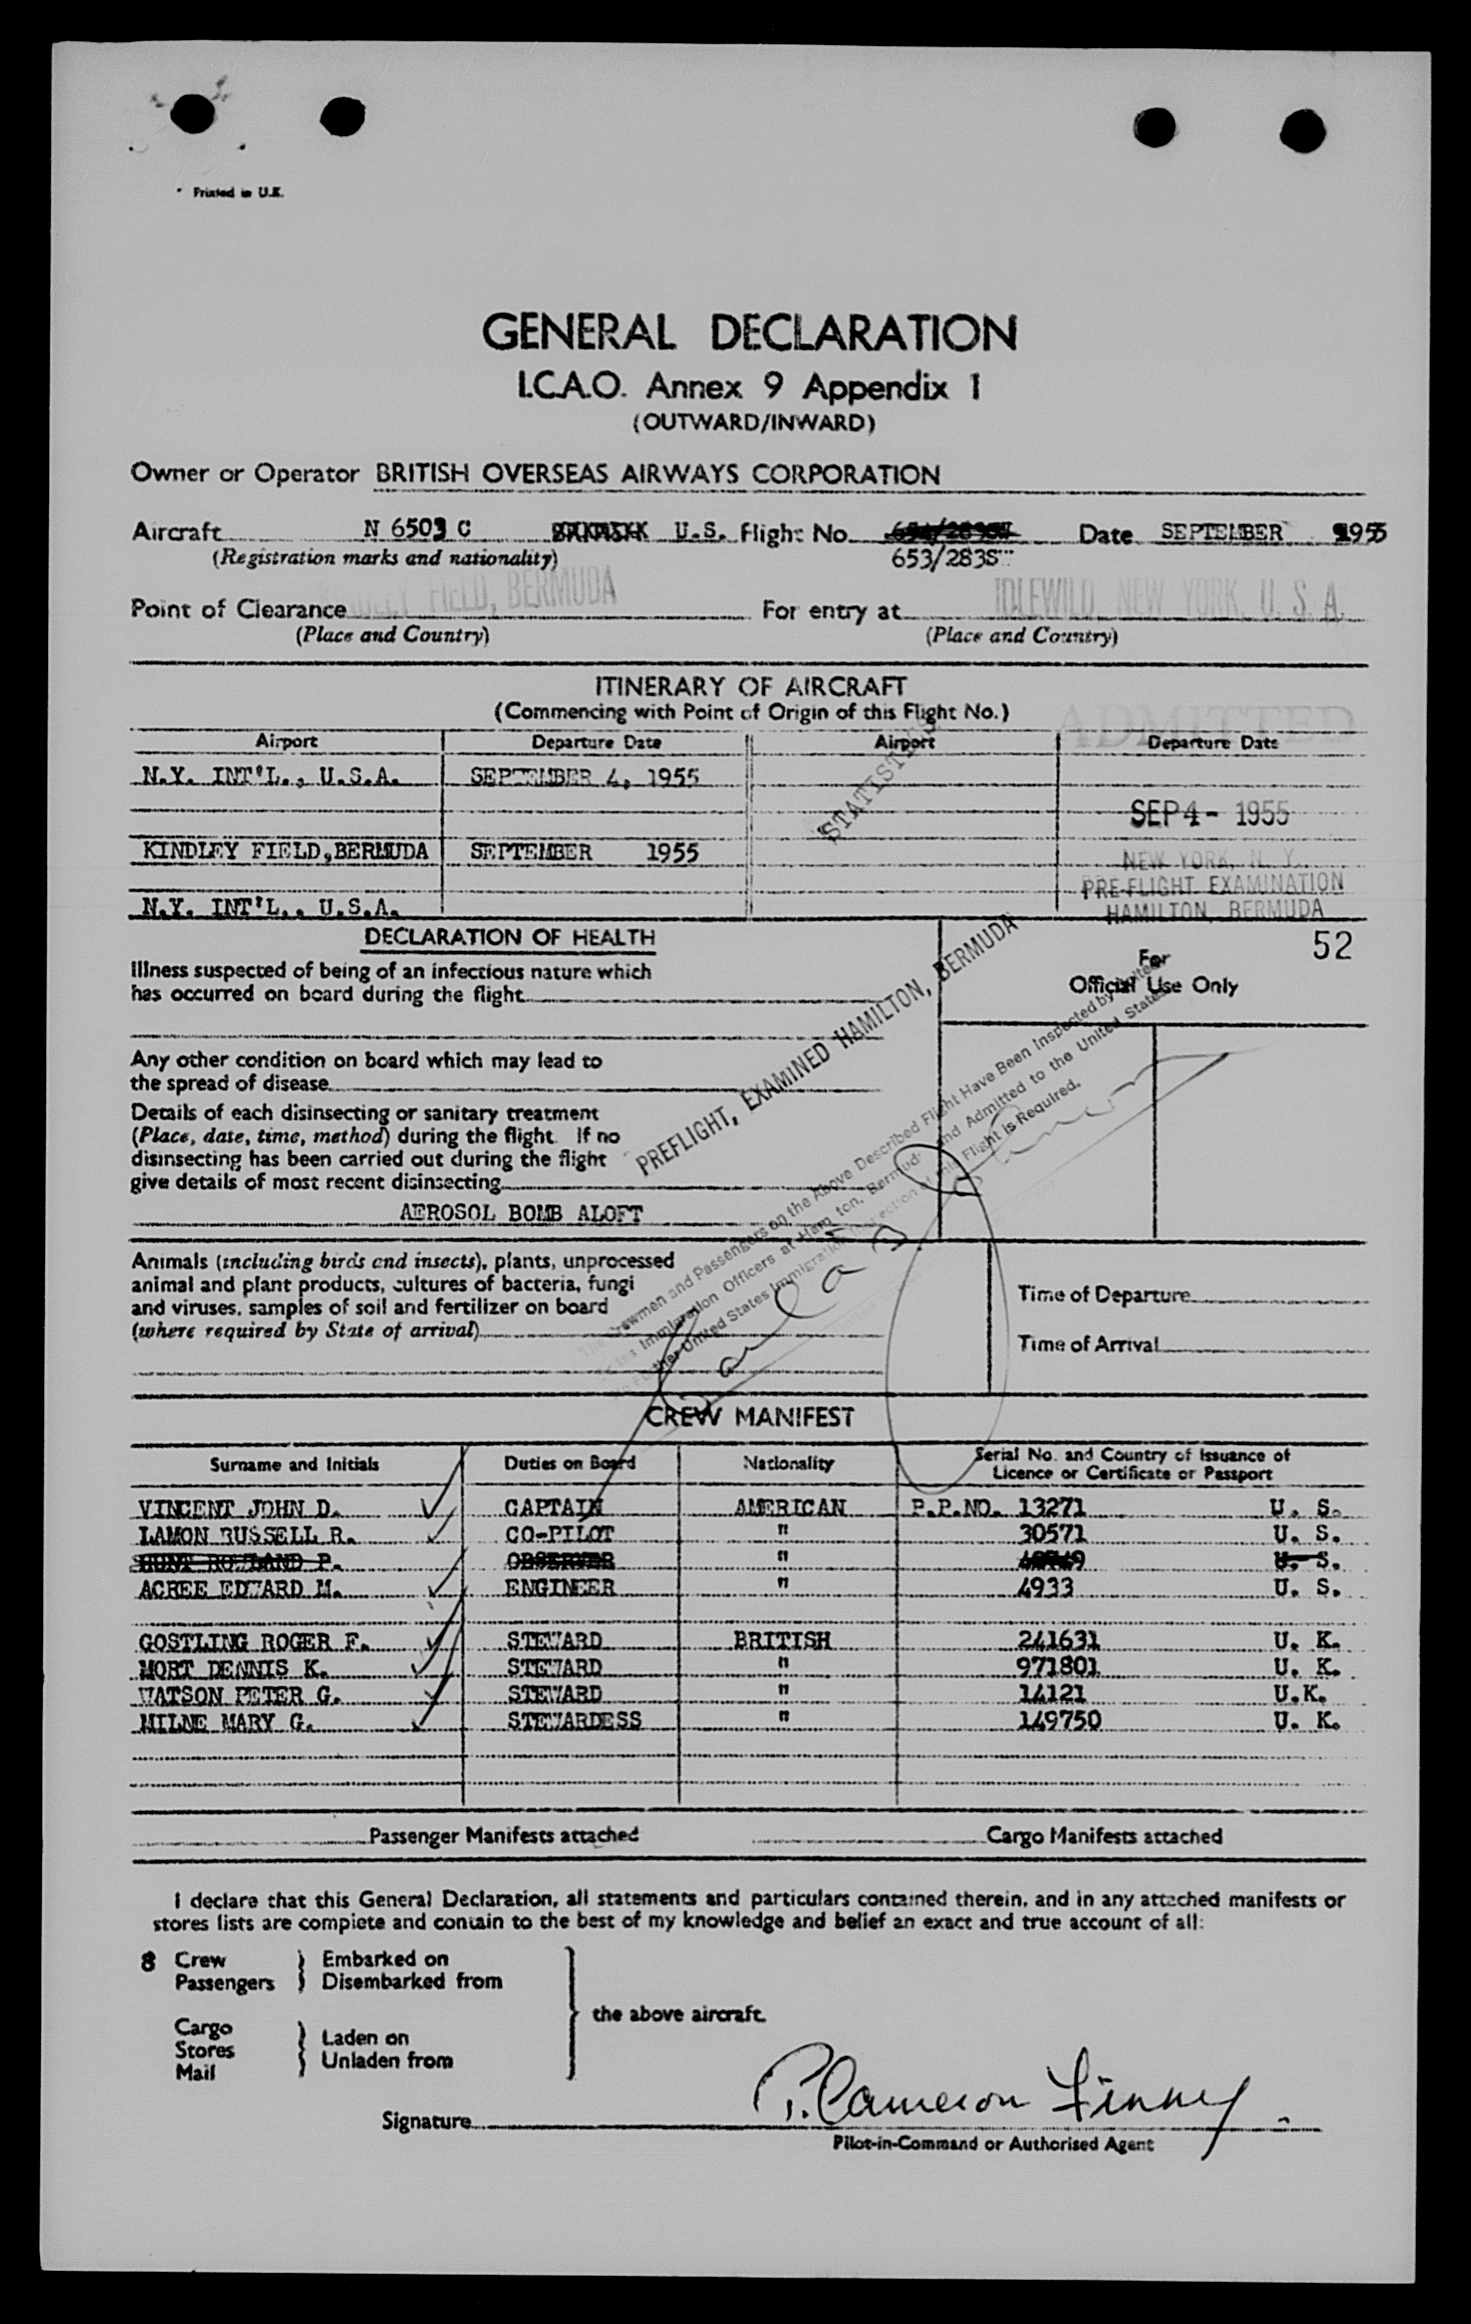 Printed in U.K.
GENERAL DECLARATION
I.C.A.O. Annex 9 Appendix 1
(OUTWARD/INWARD)
Owner or Operator BRITISH OVERSEAS AIRWAYS CORPORATION
Aircraft N 6503 C U.S. Flight No. Date SEPTEMBER 1955
(Registration marks and nationality) 653/283S
Point of Clearance FIELD, BERMUDA For entry at IDLEWILD, NEW YORK, U. S. A.
(Place and Country) (Place and Country)
ITINERARY OF AIRCRAFT
(Commencing with Point of Origin of this Flight No.)
ADMITTED
Airport Departure Date Airport Departure Date
N.Y. INT'L., U.S.A. SEPTEMBER 4, 1955
STATISTICS
SEP 4 - 1955
KINDLEY FIELD, BERMUDA SEPTEMBER 1955
NEW YORK, N. Y.
PRE-FLIGHT EXAMINATION
N.Y. INT'L., U.S.A. HAMILTON, BERMUDA
DECLARATION OF HEALTH 52
Illness suspected of being of an infectious nature which
has occurred on board during the flight
For
Official Use Only
Any other condition on board which may lead to
the spread of disease
Details of each disinsecting or sanitary treatment
(Place, date, time, method) during the flight. If no
disinsecting has been carried out during the flight
give details of most recent disinsecting
AEROSOL BOMB ALOFT
PREFLIGHT, EXAMINED HAMILTON, BERMUDA
Crewmen and Passengers on the Above Described Flight Have Been Inspected by United
States Immigration Officers at Hamilton, Bermuda and Admitted to the United States.
No Further United States Immigration Inspection of this Flight is Required.
Animals (including birds and insects), plants, unprocessed
animal and plant products, cultures of bacteria, fungi
and viruses, samples of soil and fertilizer on board
(where required by State of arrival)
Time of Departure
Time of Arrival
CREW MANIFEST
Surname and Initials Duties on Board Nationality Serial No. and Country of Issuance of
Licence or Certificate or Passport
VINCENT JOHN D. CAPTAIN AMERICAN P.P.NO. 13271 U. S.
LAMON RUSSELL R. CO-PILOT " 30571 U. S.
HUNT ROWLAND P. OBSERVER " U. S.
ACREE EDWARD M. ENGINEER " 4933 U. S.
GOSTLING ROGER F. STEWARD BRITISH 241631 U. K.
MORT DENNIS K. STEWARD " 971801 U. K.
WATSON PETER G. STEWARD " 14121 U.K.
MILNE MARY G. STEWARDESS " 149750 U. K.
Passenger Manifests attached Cargo Manifests attached
I declare that this General Declaration, all statements and particulars contained therein, and in any attached manifests or
stores lists are complete and contain to the best of my knowledge and belief an exact and true account of all:
8 Crew Embarked on
Passengers Disembarked from
the above aircraft.
Cargo
Stores Laden on
Mail Unladen from
Signature P. Cameron Finney
Pilot-in-Command or Authorised Agent